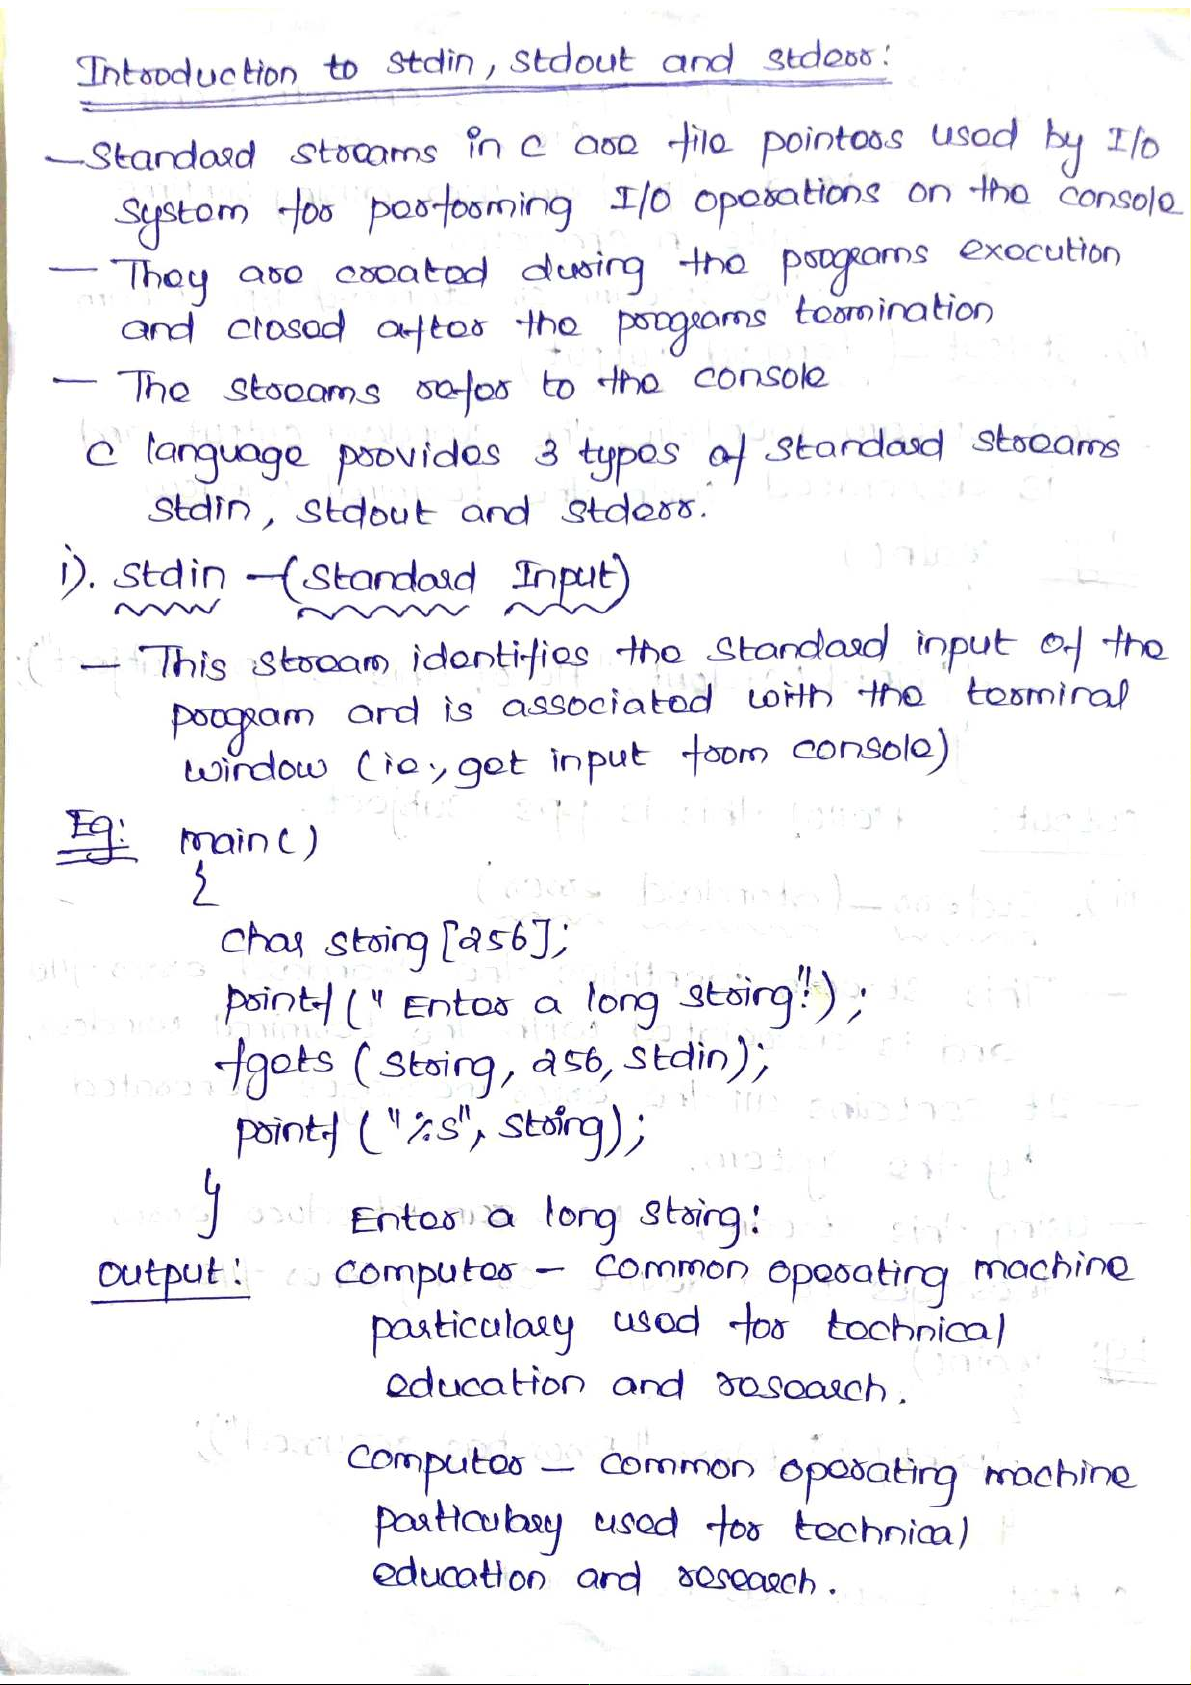 Introduction to stdin, stdout and stderr:
— Standard streams in C are file pointers used by I/O
system for performing I/O operations on the console
— They are created during the programs execution
and closed after the programs termination
— The streams refer to the console
C language provides 3 types of standard streams
stdin, stdout and stderr.
i). stdin – (Standard Input)
— This stream identifies the standard input of the
program and is associated with the terminal
window (ie., get input from console)
Eg: main()
{
char string [256];
printf (" Enter a long string:");
fgets (string, 256, stdin);
printf ("%s", string);
}
Enter a long string:
output: computer – common operating machine
particulary used for technical
education and research.
computer – common operating machine
particulary used for technical
education and research.